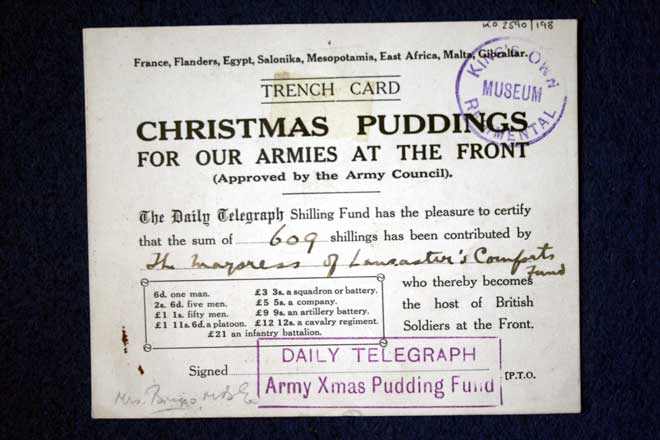 KO 2590/198
France, Flanders, Egypt, Salonika, Mesopotamia, East Africa, Malta, Gibraltar.
KING'S OWN
MUSEUM
REGIMENTAL
TRENCH CARD
CHRISTMAS PUDDINGS
FOR OUR ARMIES AT THE FRONT
(Approved by the Army Council).
The Daily Telegraph Shilling Fund has the pleasure to certify
that the sum of 609 shillings has been contributed by
The Mayoress of Lancaster's Comforts
Fund
6d. one man.
2s. 6d. five men.
£1 1s. fifty men.
£1 11s. 6d. a platoon.
£3 3s. a squadron or battery.
£5 5s. a company.
£9 9s. an artillery battery.
£12 12s. a cavalry regiment.
£21 an infantry battalion.
who thereby becomes
the host of British
Soldiers at the Front.
Signed
DAILY TELEGRAPH
Army Xmas Pudding Fund
[P.T.O.
Mrs.